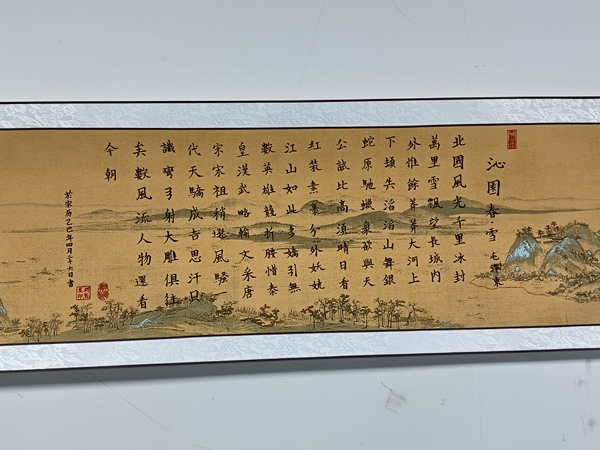 沁園春·雪
毛澤東
北國風光千里冰封
萬里雪飄望長城内
外惟餘莽莽大河上
下頓失滔滔山舞銀
蛇原馳蠟象欲與天
公試比高須晴日看
紅裝素裹分外妖嬈
江山如此多嬌引無
數英雄競折腰惜秦
皇漢武略輸文采唐
宗宋祖稍遜風騷
代天驕成吉思汗只
識彎弓射大雕俱往
矣數風流人物還看
今朝
於农历乙巳年四月二十六日書